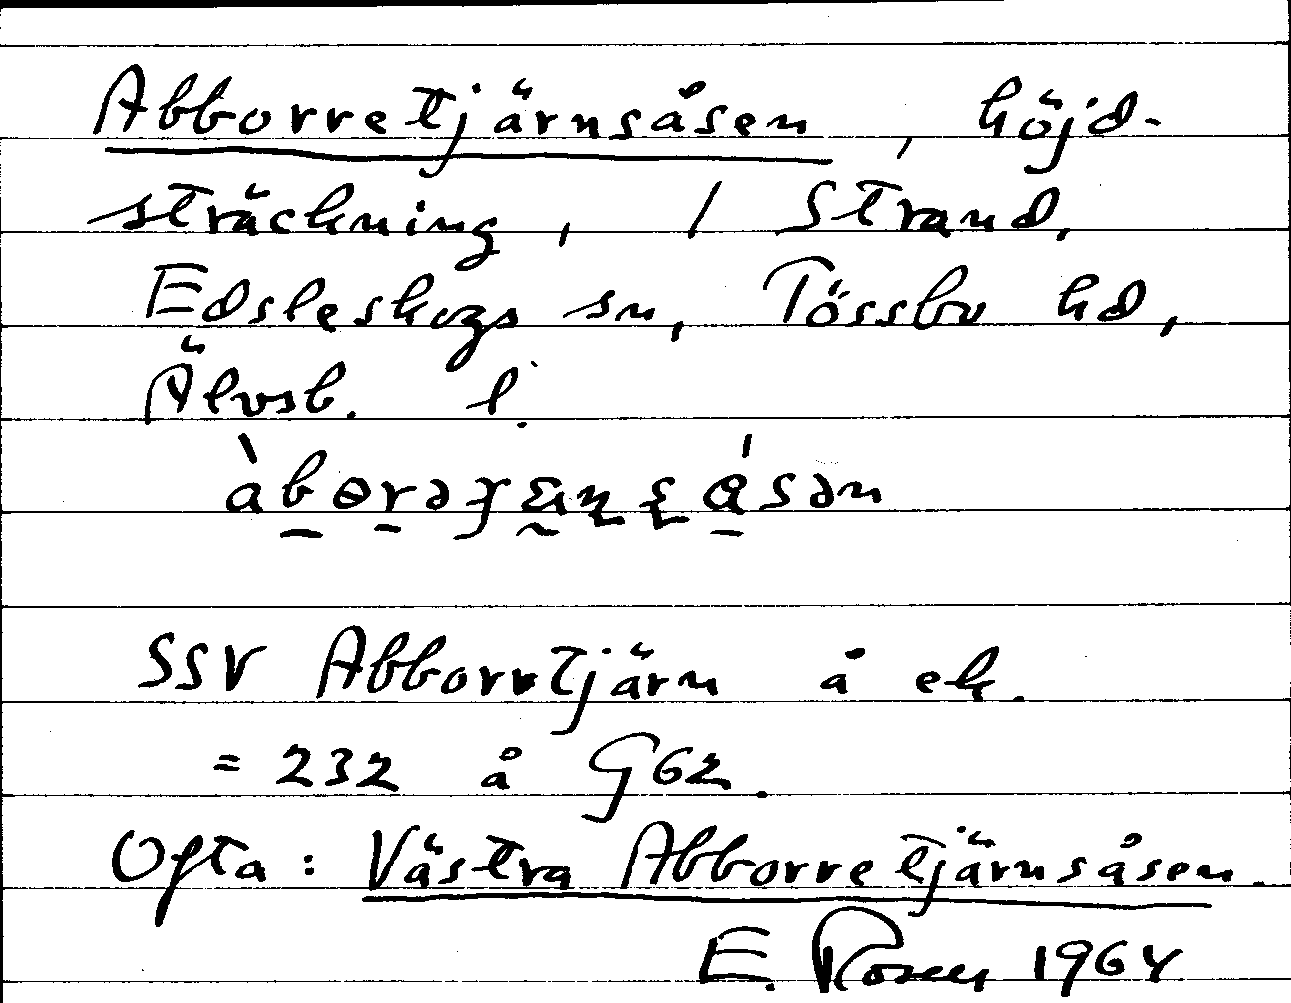 Abborretjärnsåsen, höjd-
sträckning, / Strand,
Edsleskogs sn, Tössbo hd,
Älvsb. l.
SSV Abborrtjärn å ek.
= 232 å G62.
Ofta: Västra Abborretjärnsåsen.
E. Rosen 1964